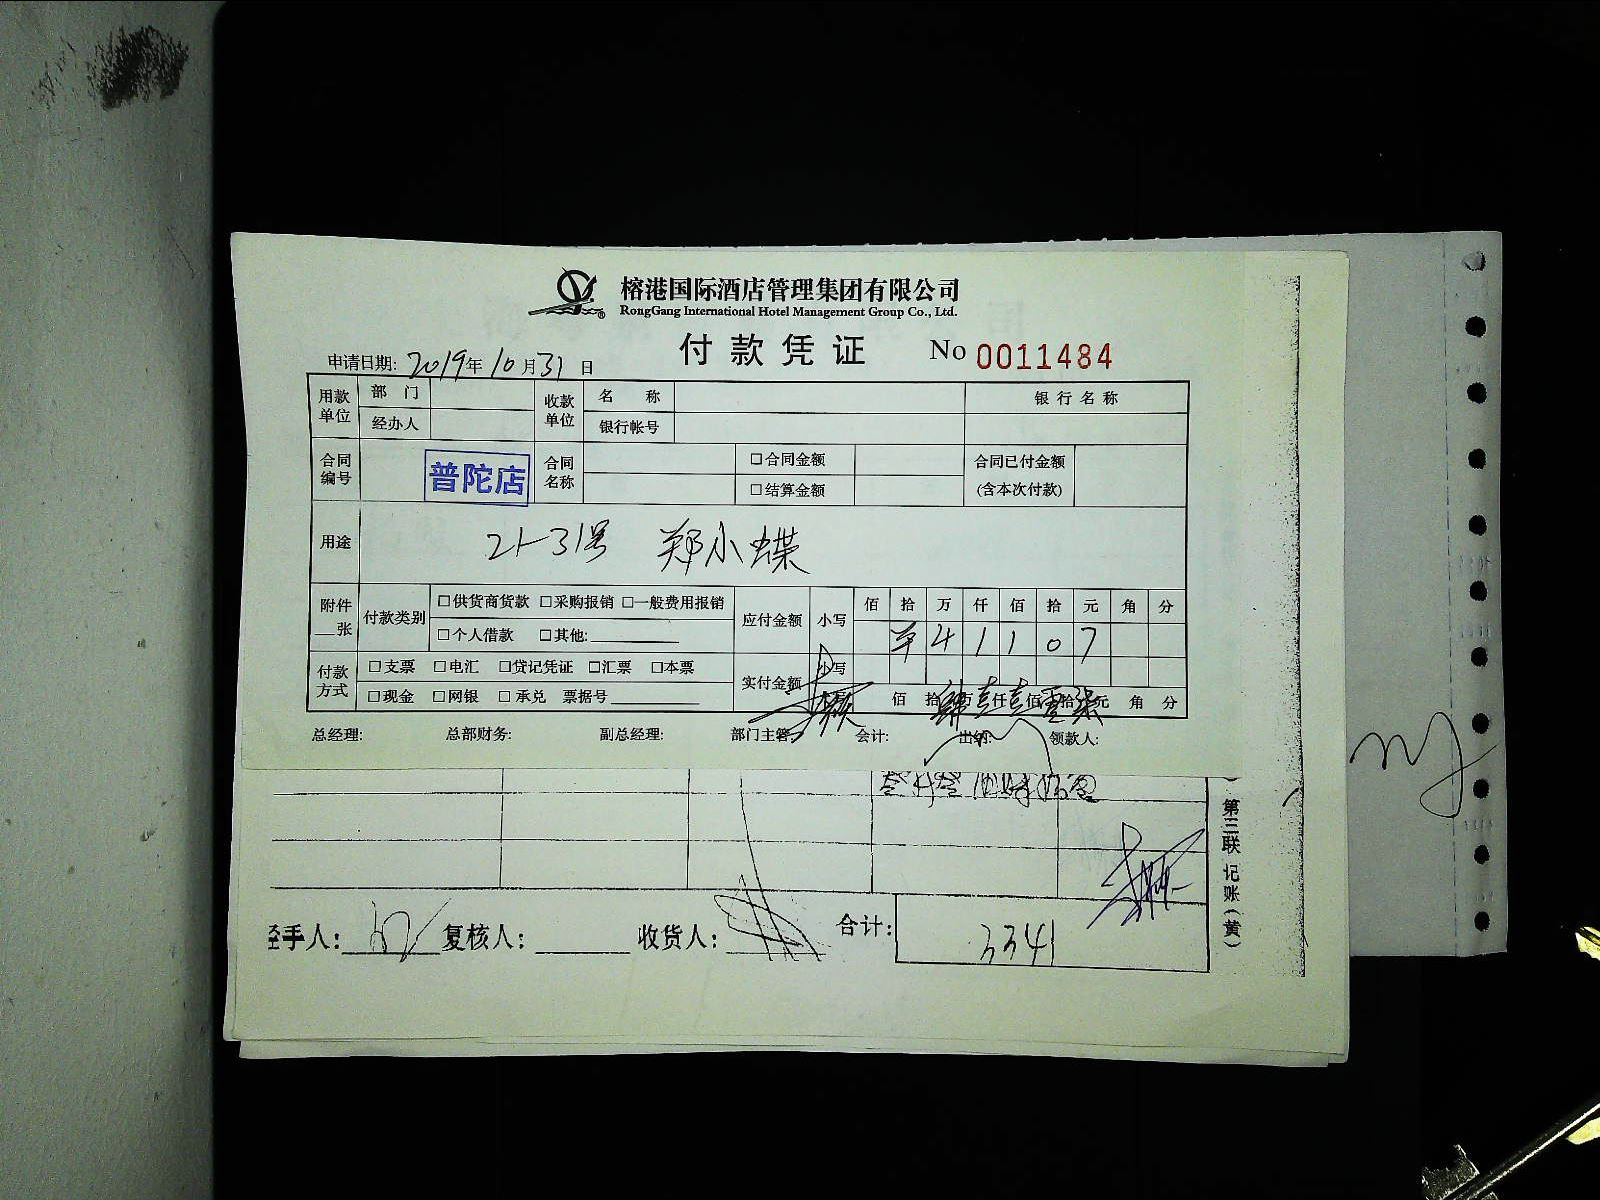 榕港国际酒店管理集团有限公司
RongGang International Hotel Management Group Co., Ltd.
付款凭证 No 0011484
申请日期: 2019年10月31日
用款单位 部门 收款单位 名称 银行名称
经办人 银行帐号
合同编号 普陀店 合同名称 □合同金额 合同已付金额
□结算金额 (含本次付款)
用途 21-31号 郑小蝶
附件 张 付款类别 □供货商货款 □采购报销 □一般费用报销 应付金额 小写 佰 拾 万 仟 佰 拾 元 角 分
□个人借款 □其他: ¥ 4 1 1 0 7
付款方式 □支票 □电汇 □贷记凭证 □汇票 □本票 实付金额 小写
□现金 □网银 □承兑 票据号 佰 拾 肆万 壹仟 壹佰 零拾 柒元 角 分
总经理: 总部财务: 副总经理: 部门主管: 会计: 出纳: 领款人:
第三联 记账(黄)
经手人: 复核人: 收货人: 合计: 3341